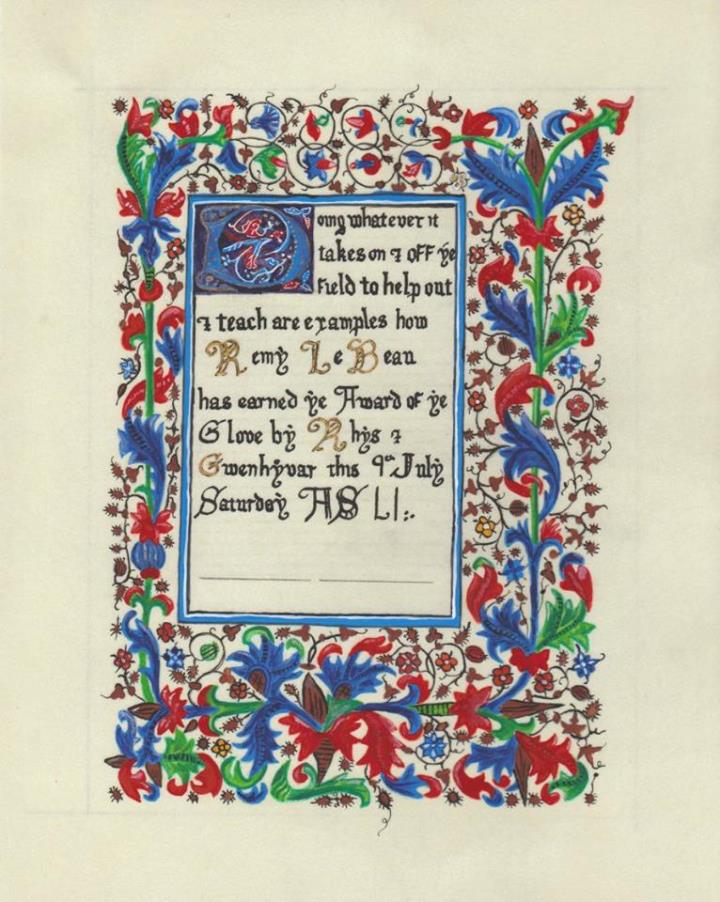 Doing whatever it
takes on ⁊ off ye
field to help out
⁊ teach are examples how
Remy Le Beau
has earned ye Award of ye
Glove by Rhys ⁊
Gwenhÿvar this 9th July
Saturday AS LI:.